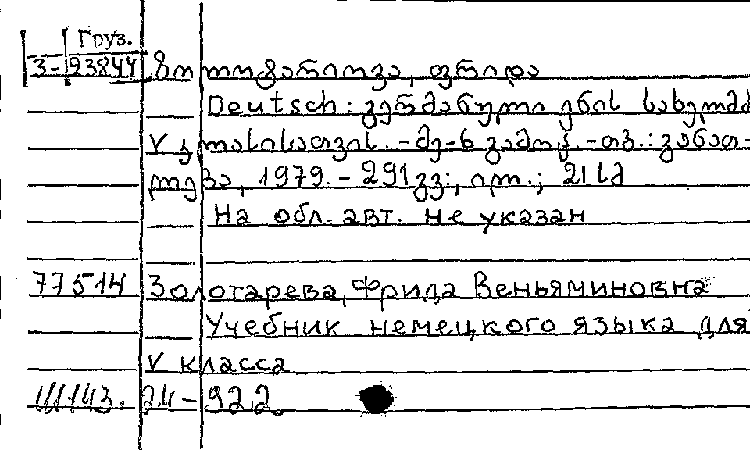 Груз.
3-93844 ზოლოტარიოვა, ფრიდა
Deutsch: გერმანული ენის სახელმძ
V კლასისათვის. -მე-6 გამოც. -თბ.: განათ-
ლება, 1979. - 291 გვ., ილ.; 21 სმ
На обл. авт. не указан
77514 Золотарева, Фрида Веньяминовна
Учебник немецкого языка для
V класса
24-922